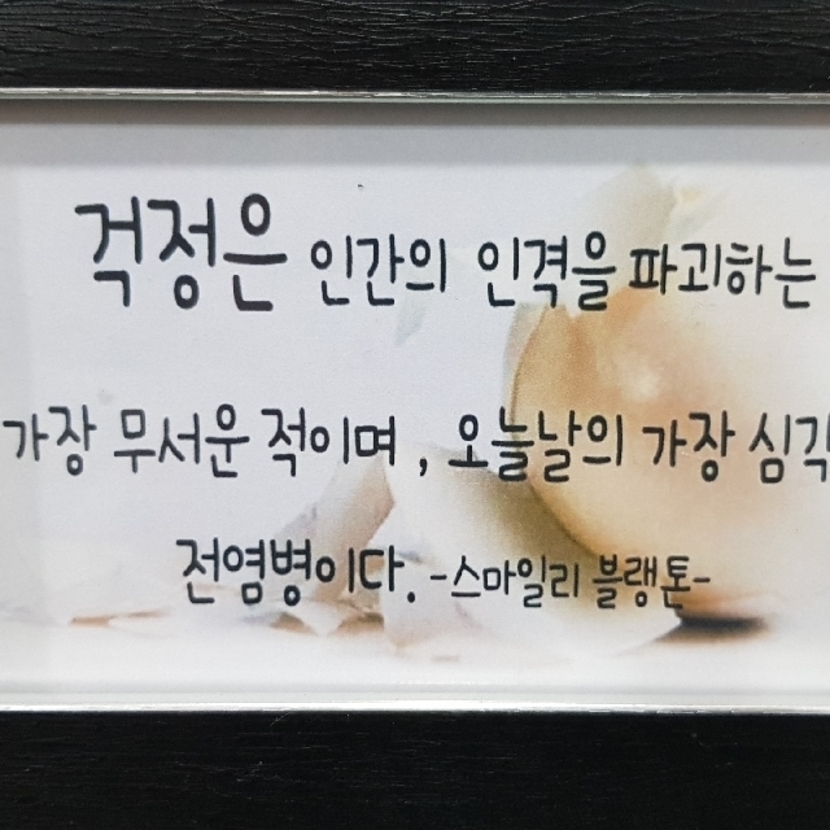 걱정은 인간의 인격을 파괴하는
가장 무서운 적이며, 오늘날의 가장
전염병이다. -스마일리 블랭톤-